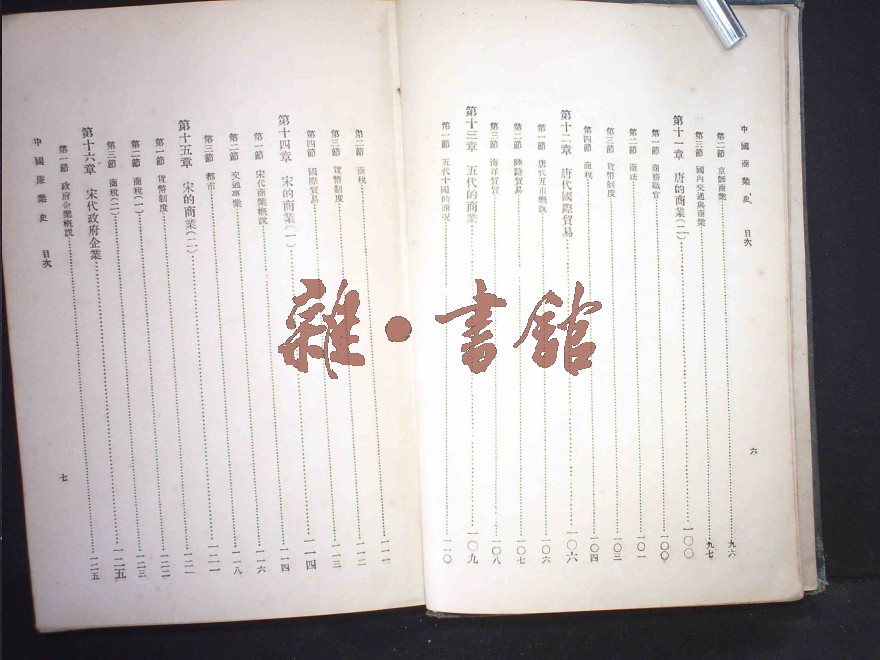 中國商業史 目次
第二節 京師商業 九六
第三節 國內交通與商業 九七
第十一章 唐的商業(二) 一〇〇
第一節 商務職官 一〇〇
第二節 商法 一〇一
第三節 貨幣制度 一〇三
第四節 商稅 一〇四
第十二章 唐代國際貿易 一〇六
第一節 唐代互市概說 一〇六
第二節 陸路貿易 一〇七
第三節 南洋貿貿 一〇八
第十三章 五代的商業 一〇九
第一節 五代十國的商況 一一〇
六
第二節 商稅 一一一
第三節 貨幣制度 一一二
第四節 國際貿易 一一三
第十四章 宋的商業(一) 一一四
第一節 宋代商業概況 一一四
第二節 交通事業 一一六
第三節 都市 一一八
第十五章 宋的商業(二) 一二一
第一節 貨幣制度 一二一
第二節 商稅(一) 一二二
第三節 商稅(二) 一二三
第十六章 宋代政府企業 一二五
第一節 政府企業概說 一二五
中國商業史 目次
七
雜·書館